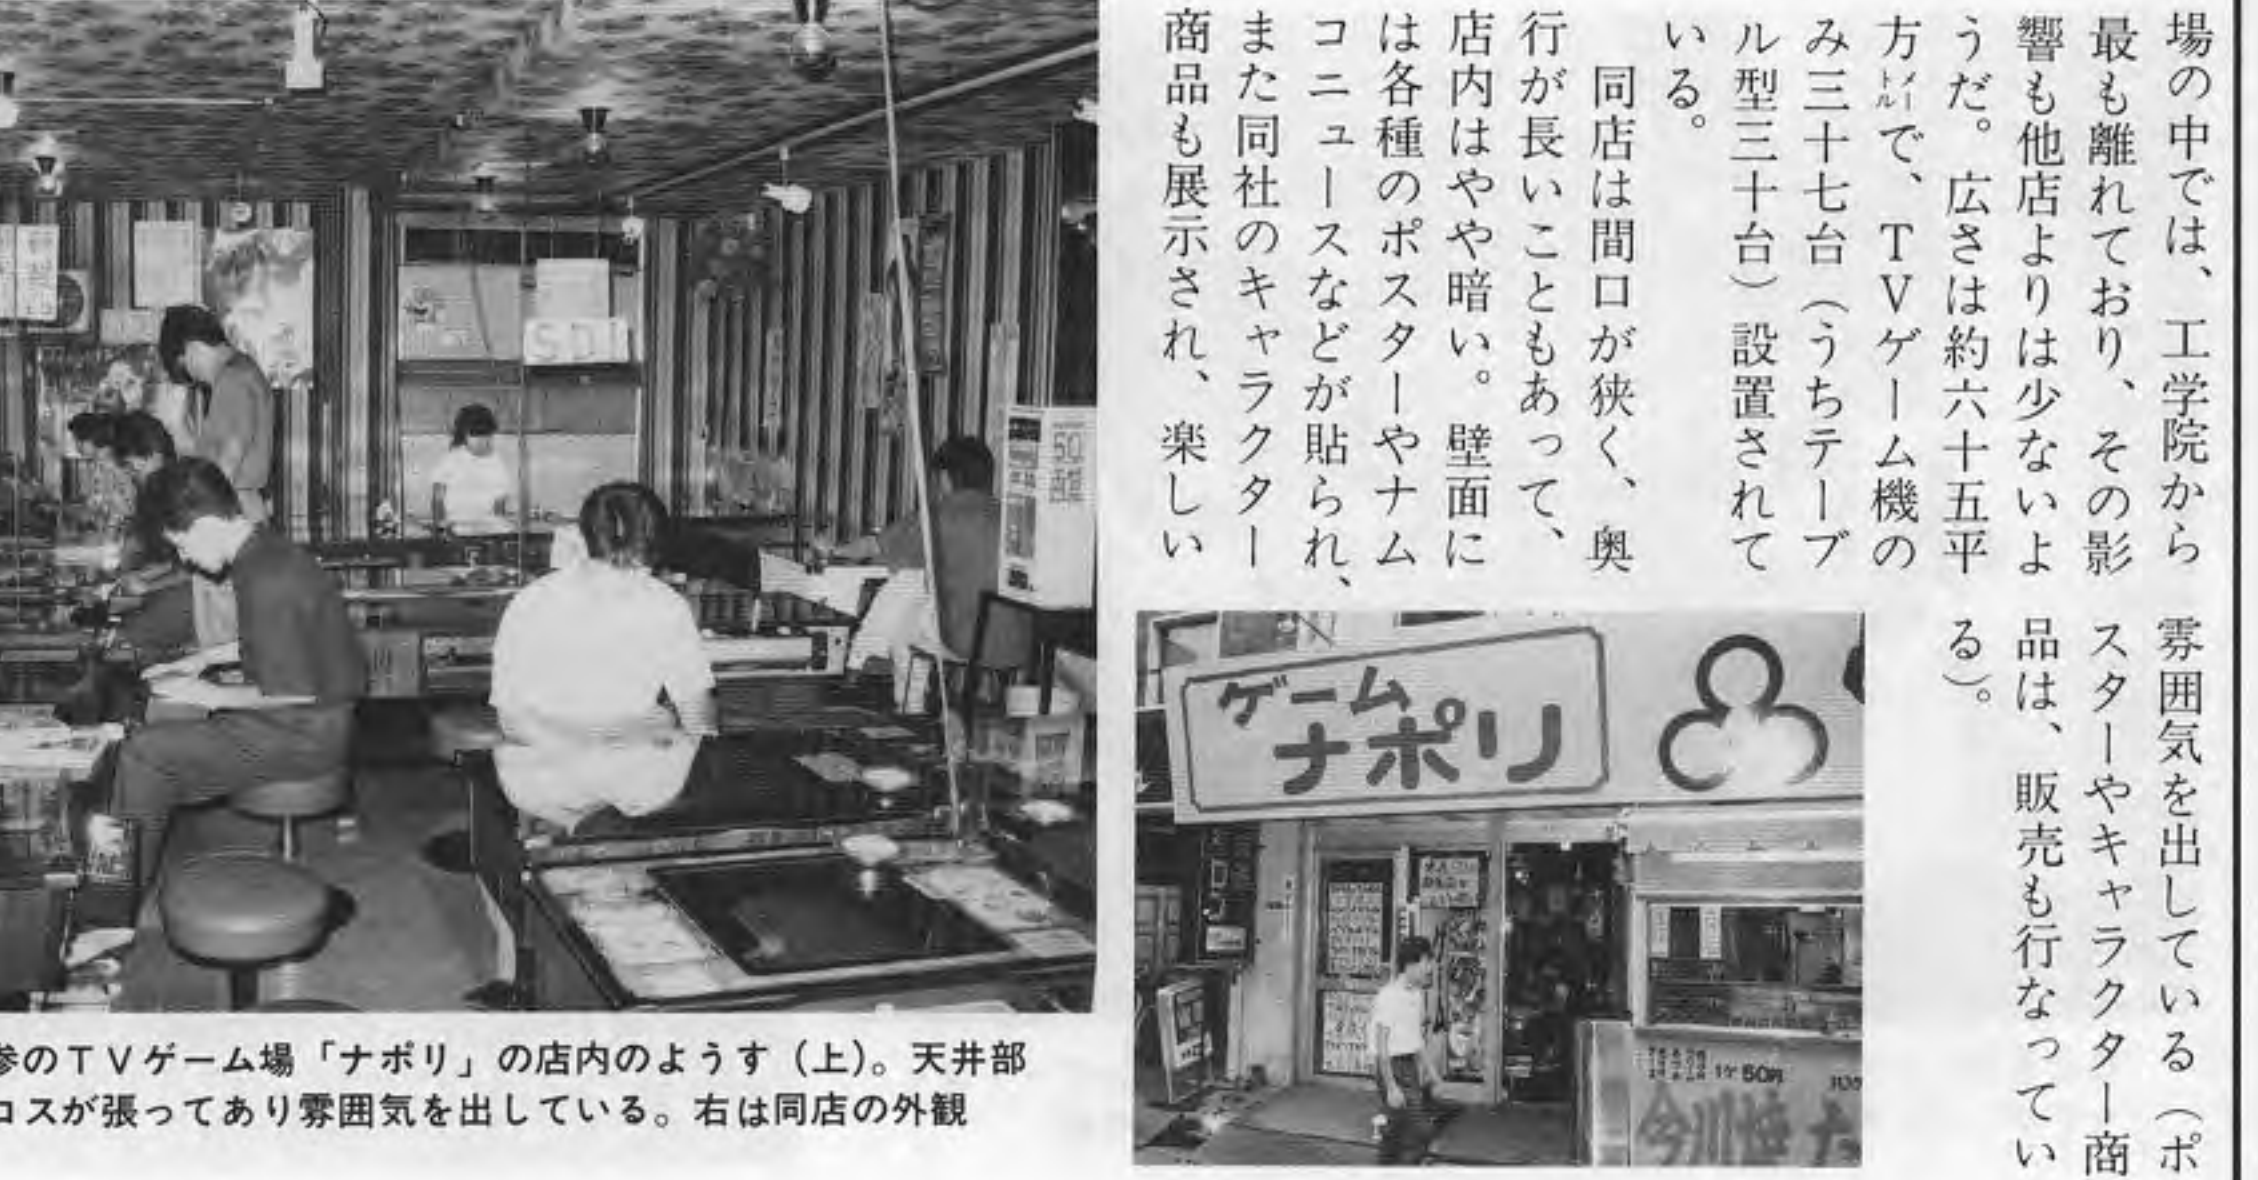 場の中では、工学院から
最も離れており、その影
響も他店よりは少ないよ
うだ。広さは約六十五平
方メートルで、TVゲーム機の
み三十七台（うちテーブ
ル型三十台）設置されて
いる。
同店は間口が狭く、奥
行が長いこともあって、
店内はやや暗い。壁面に
は各種のポスターやナム
コニュースなどが貼られ、
また同社のキャラクター
商品も展示され、楽しい
雰囲気を出している（ポ
スターやキャラクター商
品は、販売も行なってい
る）。
SDI
50
ゲーム
ナポリ
1ヶ50円
今川焼
参のTVゲーム場「ナポリ」の店内のようす（上）。天井部
コスが張ってあり雰囲気を出している。右は同店の外観